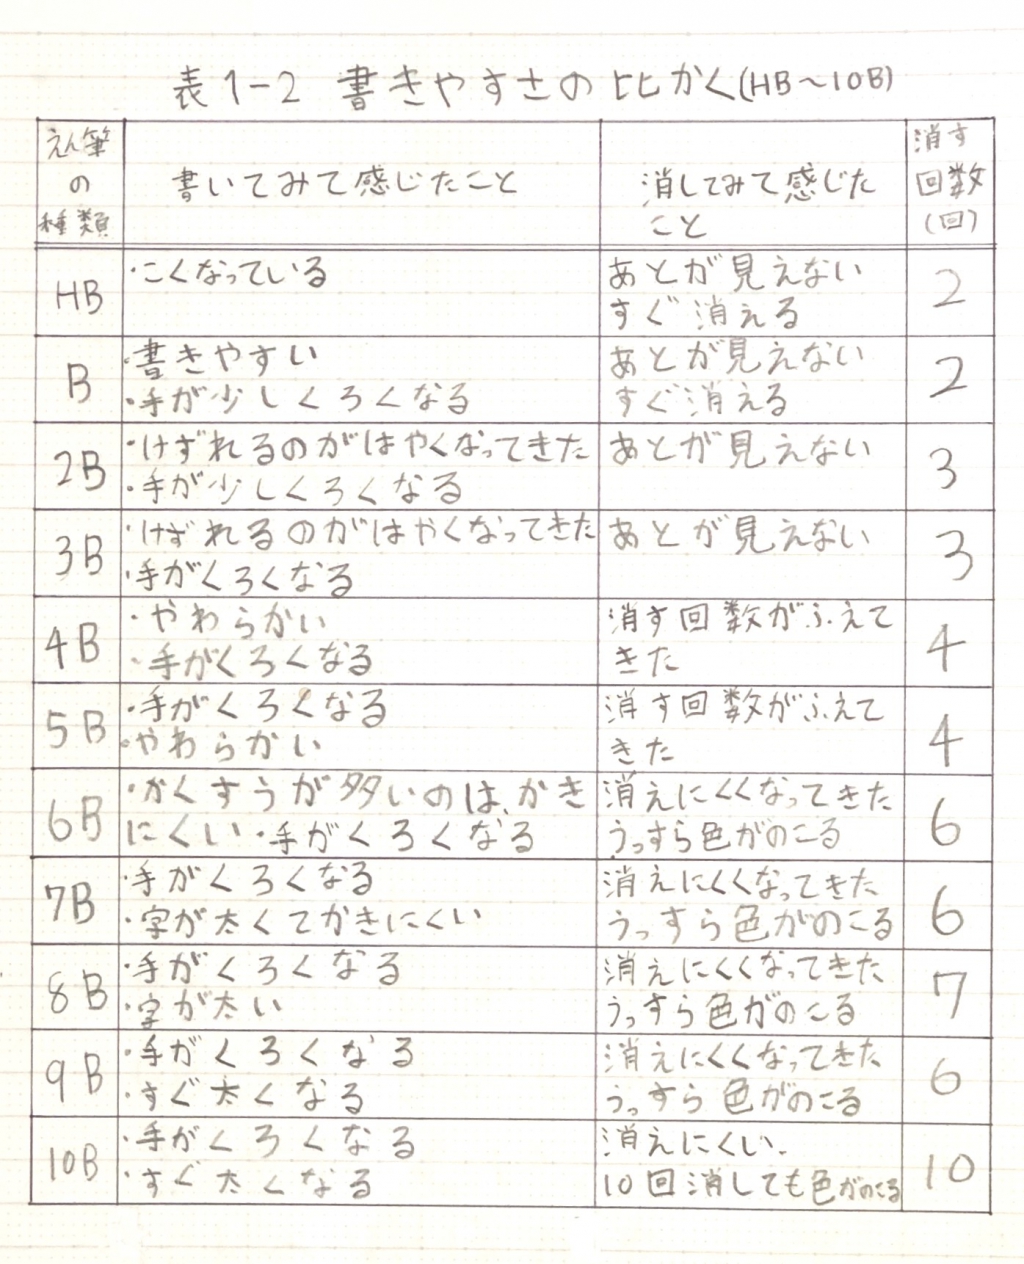 表1-2 書きやすさの比かく(HB〜10B)
えん筆
の
種類
書いてみて感じたこと
消してみて感じた
こと
消す
回数
(回)
HB
・こくなっている
あとが見えない
すぐ消える
2
B
・書きやすい
・手が少しくろくなる
あとが見えない
すぐ消える
2
2B
・けずれるのがはやくなってきた
・手が少しくろくなる
あとが見えない
3
3B
・けずれるのがはやくなってきた
・手がくろくなる
あとが見えない
3
4B
・やわらかい
・手がくろくなる
消す回数がふえて
きた
4
5B
・手がくろくなる
・やわらかい
消す回数がふえて
きた
4
6B
・かくすうが多いのは、かき
にくい・手がくろくなる
消えにくくなってきた
うっすら色がのこる
6
7B
・手がくろくなる
・字が太くてかきにくい
消えにくくなってきた
うっすら色がのこる
6
8B
・手がくろくなる
・字が太い
消えにくくなってきた
うっすら色がのこる
7
9B
・手がくろくなる
・すぐ太くなる
消えにくくなってきた
うっすら色がのこる
6
10B
・手がくろくなる
・すぐ太くなる
消えにくい、
10回消しても色がのこる
10